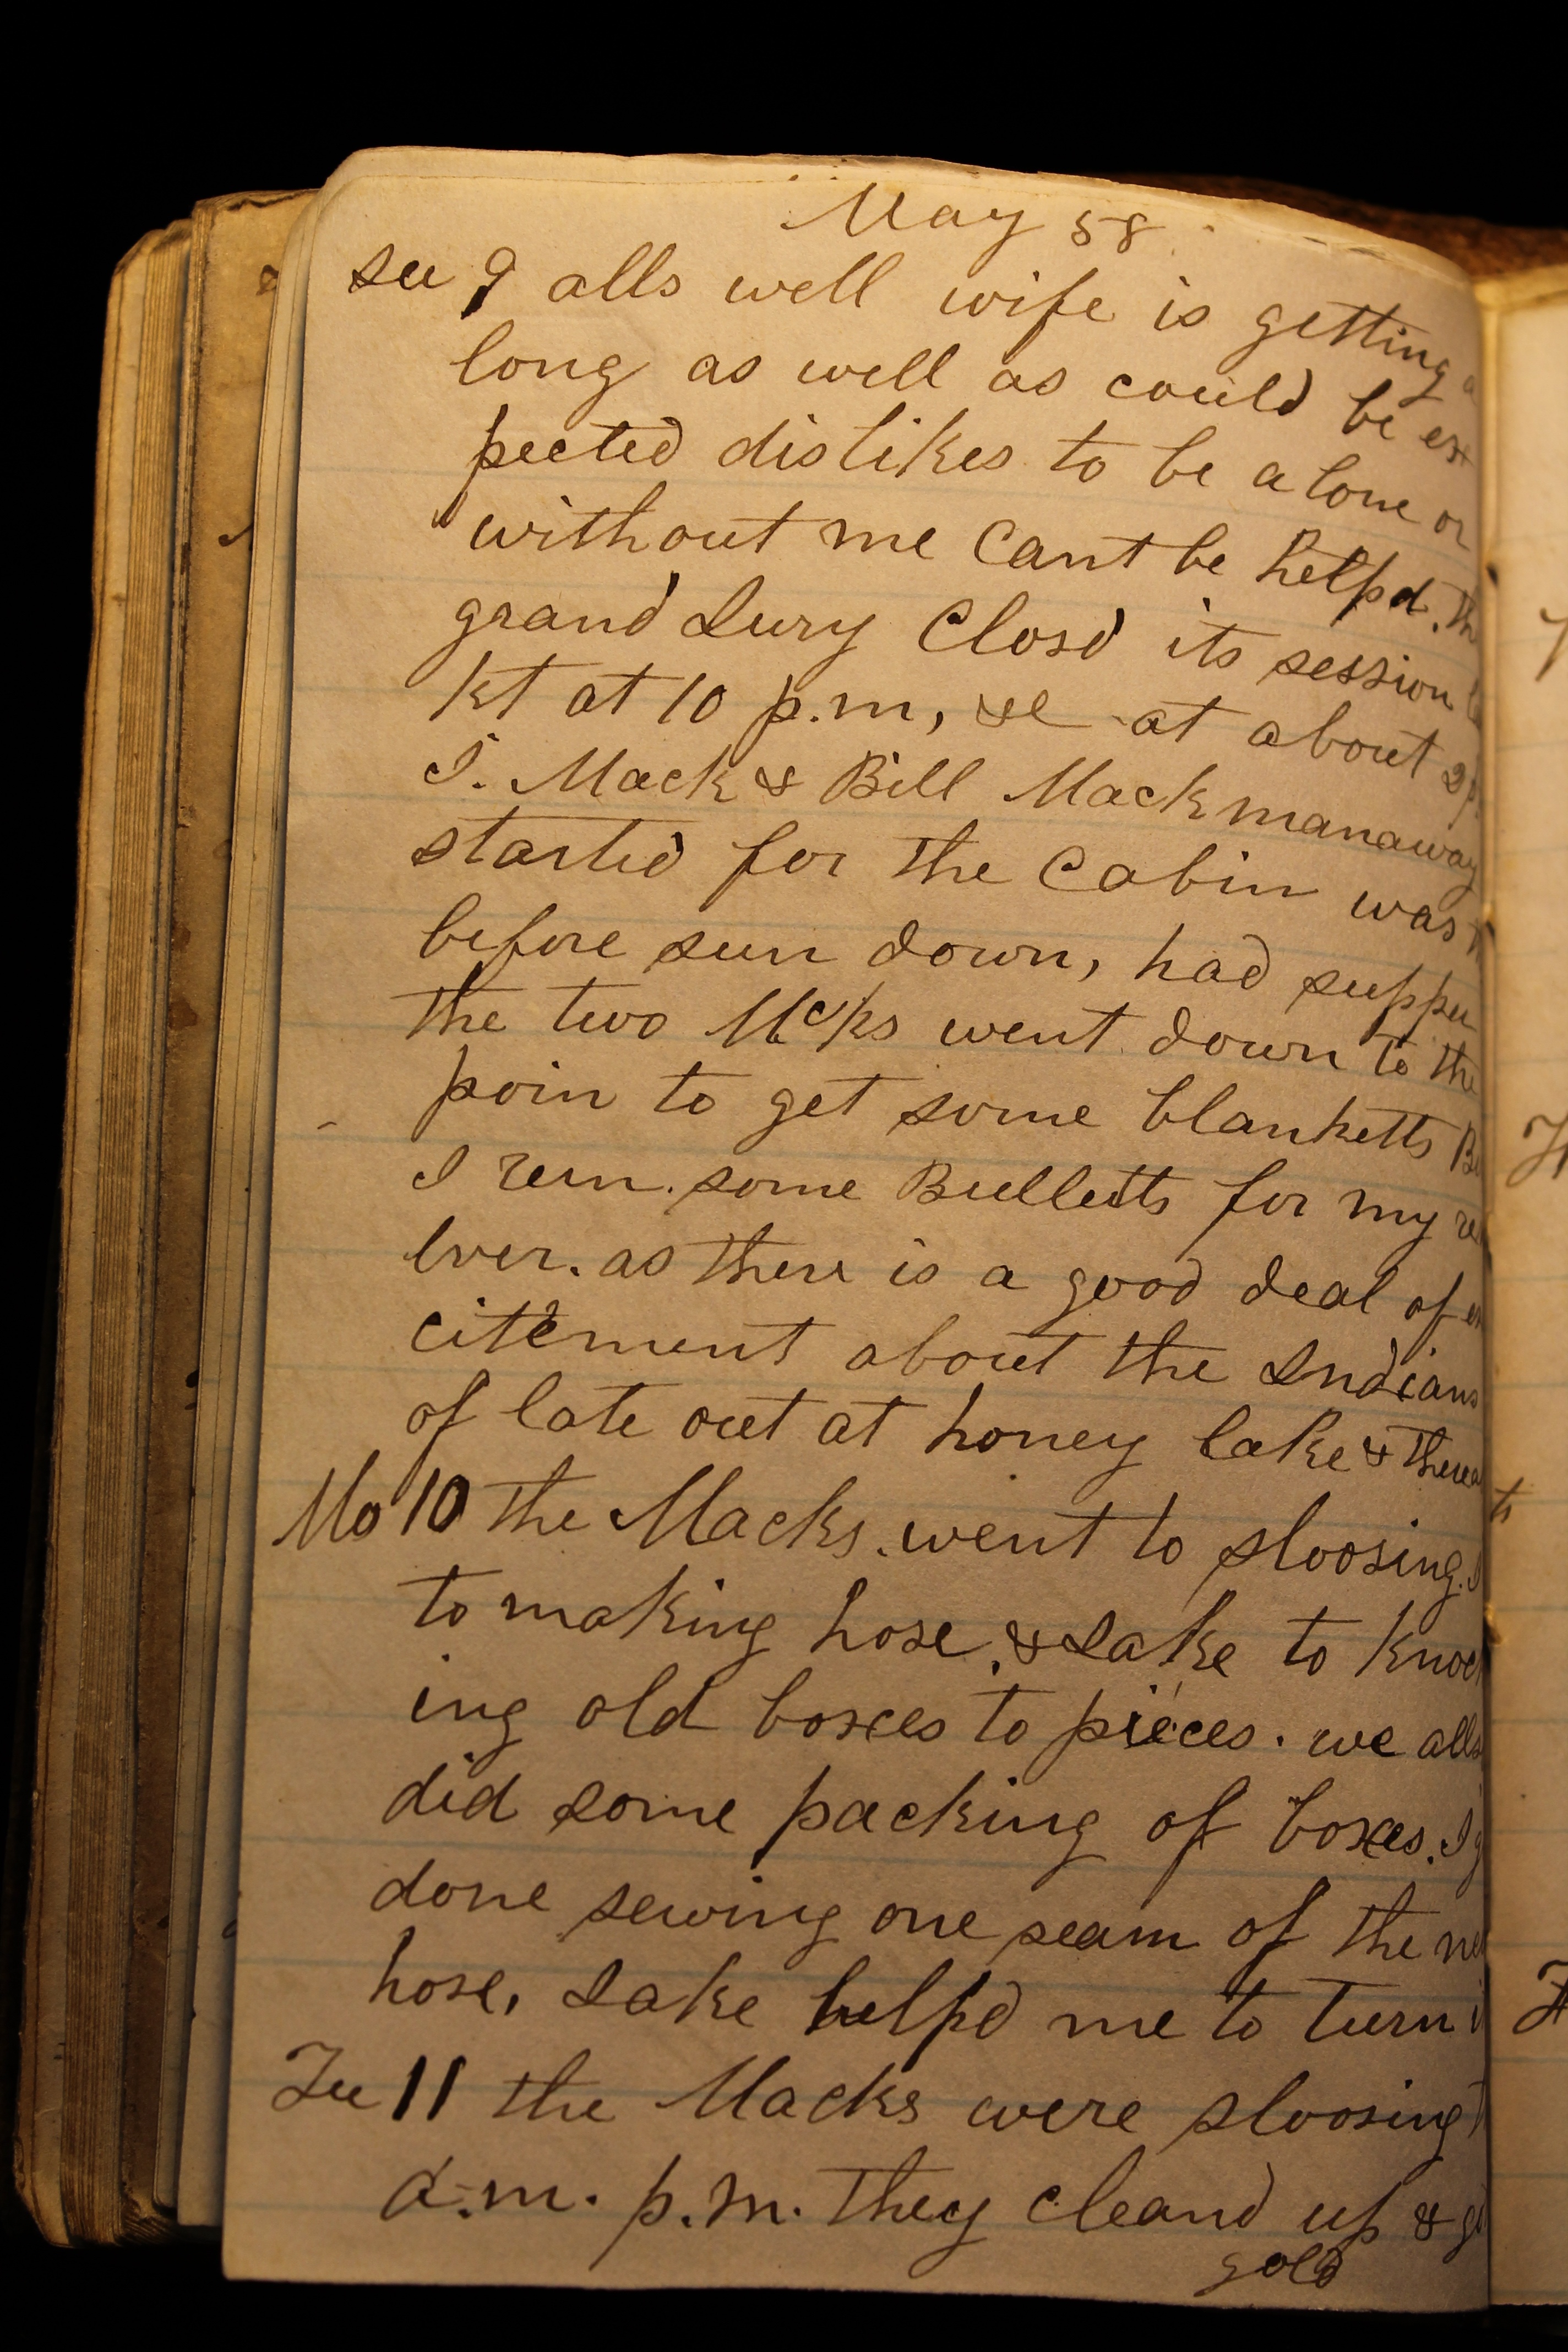 May 58
su 9 alls well wife is getting a
long as well as could be ex
pected dislikes to be alone or
without me cant be helpd. th
grand Jury Closd its session
kt at 10 p.m, & I at about 2 p.
J. Mack & Bill Mackmanaway
started for the Cabin was
before sun down, had supper
the two Mcks went down to the
poin to get some blanketts
I run some Bulletts for my re
lver. as there is a good deal of ex
citement about the Indians
of late out at honey lake &
Mo 10 the Macks went to sloosing. I
to making hose. & Jake to knock
ing old boxces to pieces. we alls
did some packing of boxes. I
done sewing one seam of the
hose, Jake helpd me to turn
Tu 11 the Macks were sloosing
a.m. p.m. they cleand up &
gold